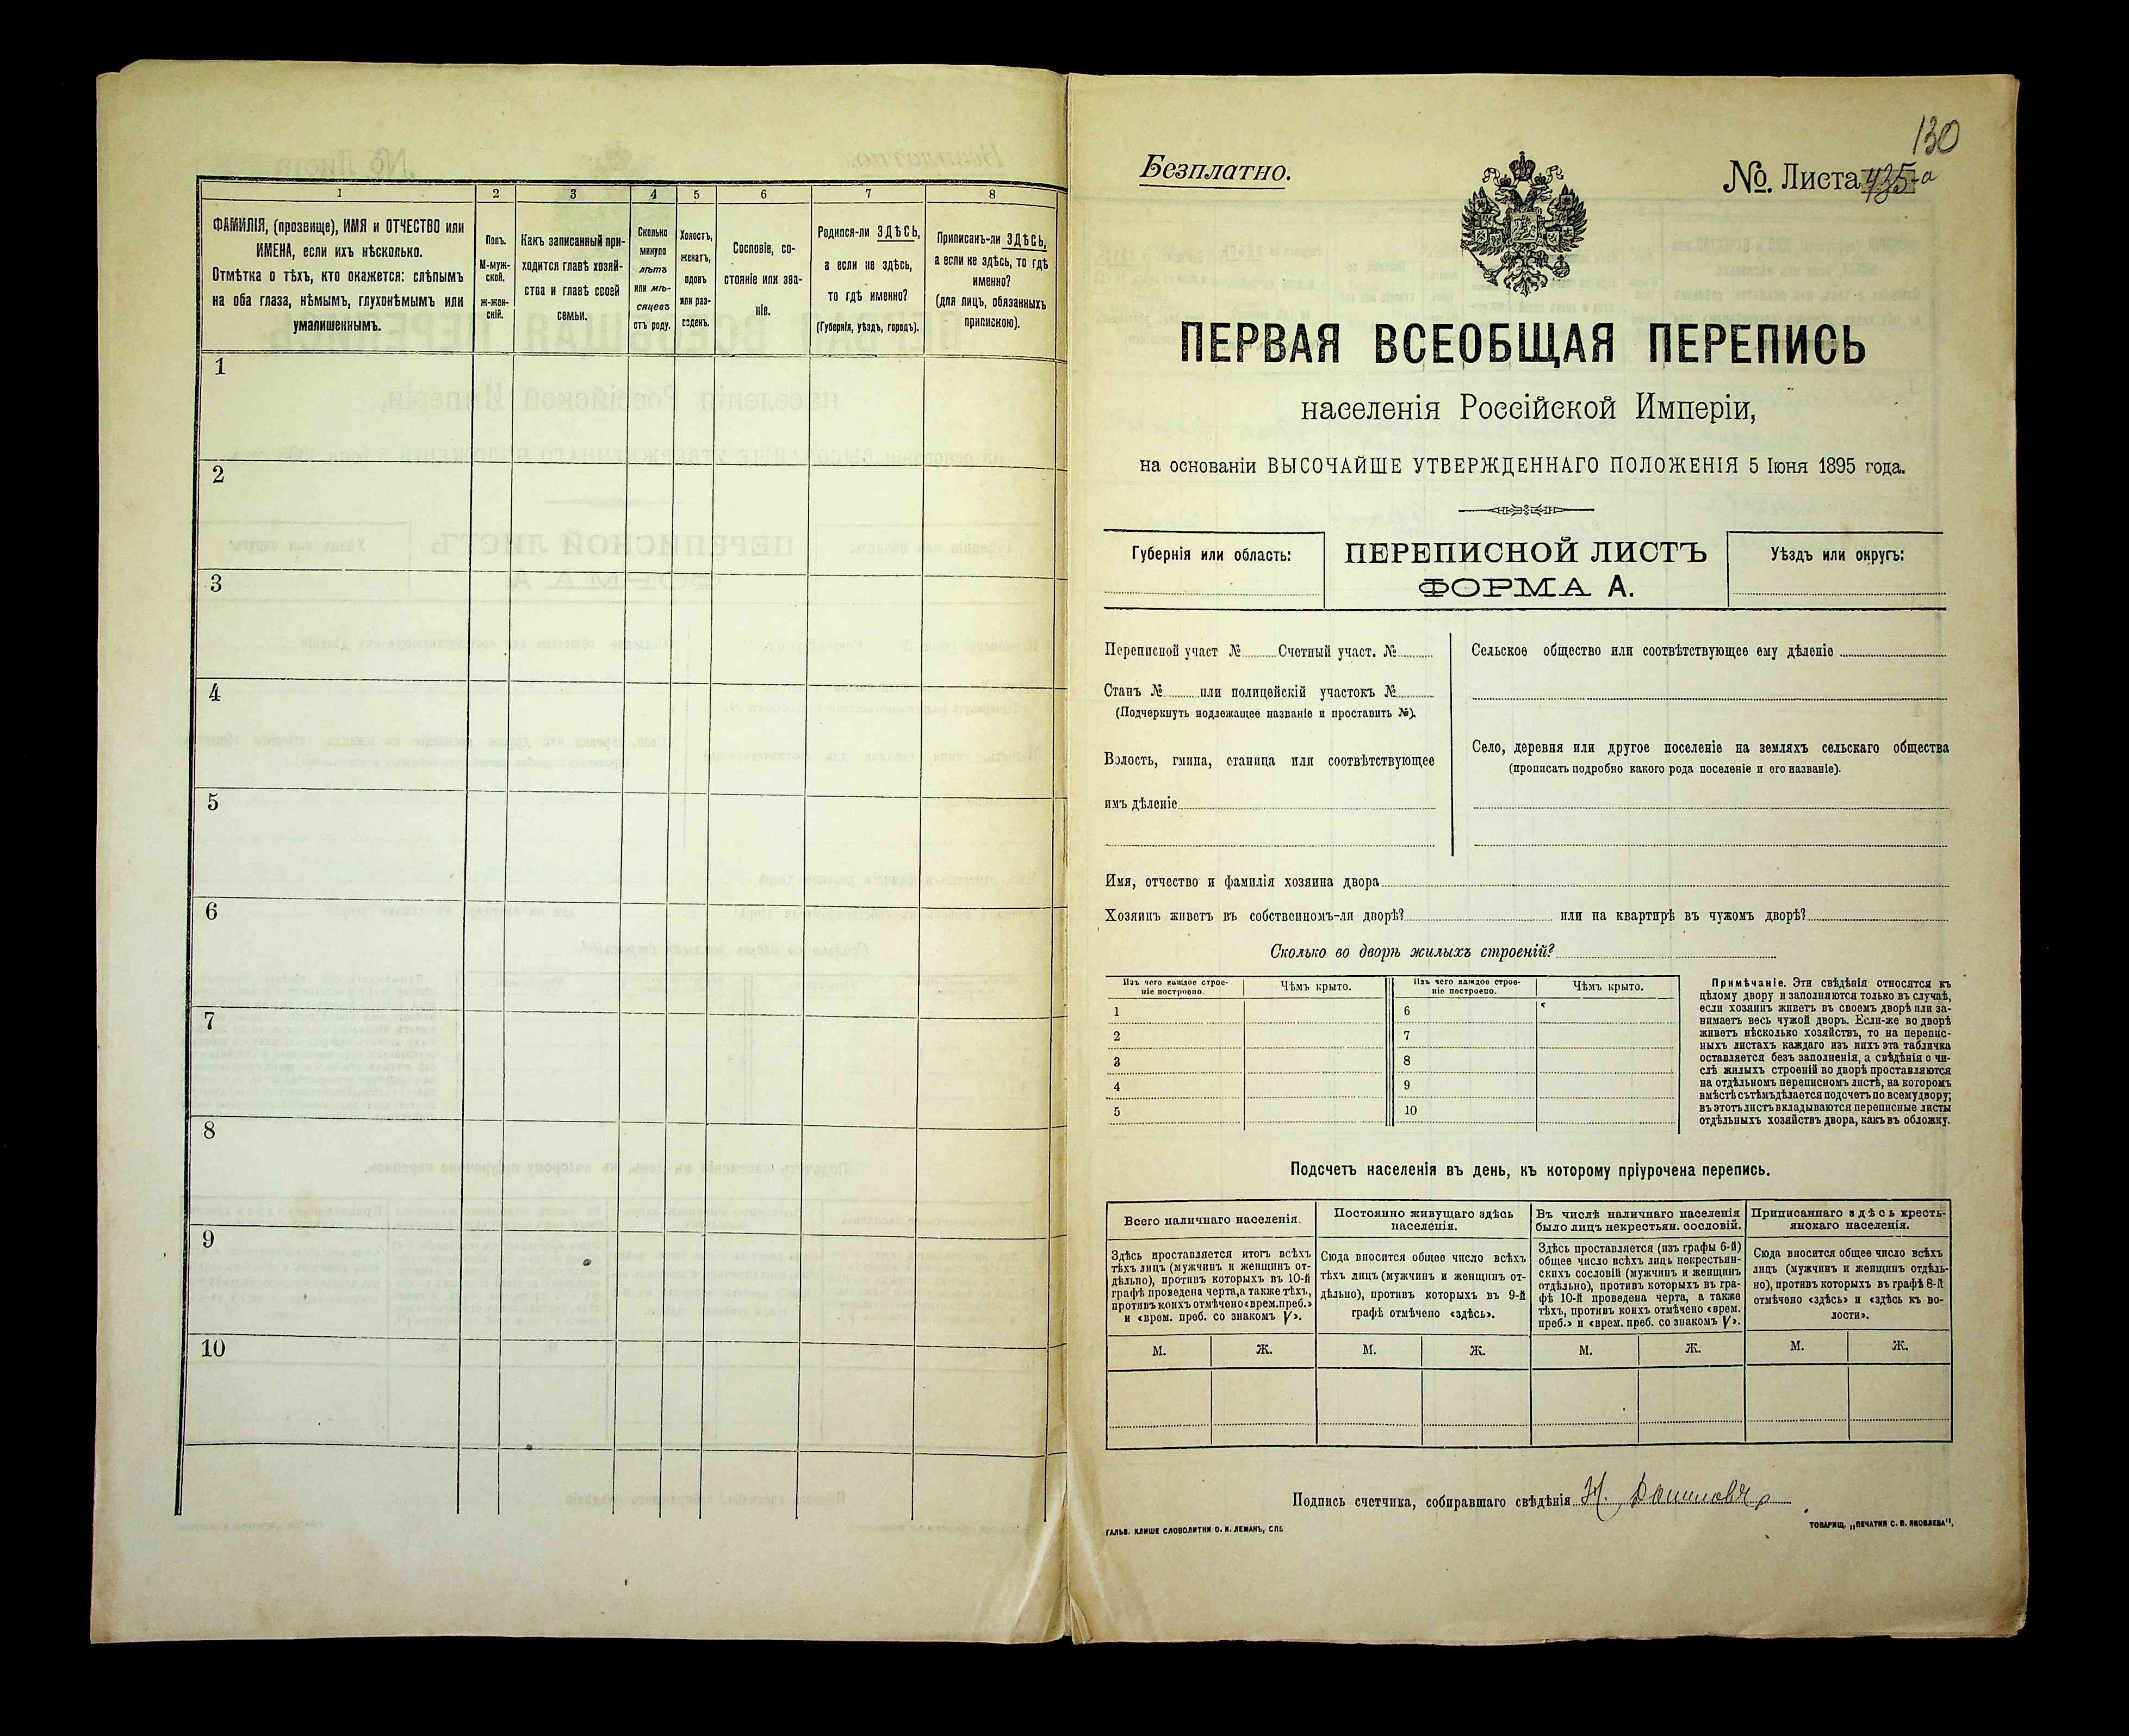 1
2
3
4
5
6
7
8
ФАМИЛІЯ, (прозвище), ИМЯ и ОТЧЕСТВО или
ИМЕНА, если ихъ нѣсколько.
Отмѣтка о тѣхъ, кто окажется: слѣпымъ
на оба глаза, нѣмымъ, глухонѣмымъ или
умалишеннымъ.
Полъ.
М-муж-
ской.
ж-жен-
скій.
Какъ записанный при-
ходится главѣ хозяй-
ства и главѣ своей
семьи.
Сколько
минуло
лѣтъ
или мѣ-
сяцевъ
отъ роду.
Холостъ,
женатъ,
вдовъ
или раз-
веденъ.
Сословіе, со-
стояніе или зва-
ніе.
Родился-ли ЗДѢСЬ,
а если не здѣсь,
то гдѣ именно?
(Губернія, уѣздъ, городъ).
Приписанъ-ли ЗДѢСЬ,
а если не здѣсь, то гдѣ
именно?
(для лицъ, обязанныхъ
припискою).
1
2
3
4
5
6
7
8
9
10
130
Безплатно.
№. Листа 435-а
ПЕРВАЯ ВСЕОБЩАЯ ПЕРЕПИСЬ
населенія Россійской Имперіи,
на основаніи ВЫСОЧАЙШЕ УТВЕРЖДЕННАГО ПОЛОЖЕНІЯ 5 Іюня 1895 года.
Губернія или область:
ПЕРЕПИСНОЙ ЛИСТЪ
ФОРМА А.
Уѣздъ или округъ:
Переписной участ № Счетный участ. №
Станъ № или полицейскій участокъ №
(Подчеркнуть подлежащее названіе и проставить №).
Волость, гмина, станица или соотвѣтствующее
имъ дѣленіе
Сельское общество или соотвѣтствующее ему дѣленіе
Село, деревня или другое поселеніе на земляхъ сельскаго общества
(прописать подробно какого рода поселеніе и его названіе).
Имя, отчество и фамилія хозяина двора
Хозяинъ живетъ въ собственномъ-ли дворѣ? или на квартирѣ въ чужомъ дворѣ?
Сколько во дворѣ жилыхъ строеній?
Изъ чего каждое строе-
ніе построено.
Чѣмъ крыто.
Изъ чего каждое строе-
ніе построено.
Чѣмъ крыто.
1
2
3
4
5
6
7
8
9
10
Примѣчаніе. Эти свѣдѣнія относятся къ
цѣлому двору и заполняются только въ случаѣ,
если хозяинъ живетъ въ своемъ дворѣ или за-
нимаетъ весь чужой дворъ. Если-же во дворѣ
живетъ нѣсколько хозяйствъ, то на перепис-
ныхъ листахъ каждаго изъ нихъ эта табличка
оставляется безъ заполненія, а свѣдѣнія о чи-
слѣ жилыхъ строеній во дворѣ проставляются
на отдѣльномъ переписномъ листѣ, на которомъ
вмѣстѣ съ тѣмъ дѣлается подсчетъ по всему двору;
въ этотъ листъ вкладываются переписные листы
отдѣльныхъ хозяйствъ двора, какъ въ обложку.
Подсчетъ населенія въ день, къ которому пріурочена перепись.
Всего наличнаго населенія.
Постоянно живущаго здѣсь
населенія.
Въ числѣ наличнаго населенія
было лицъ некрестьян. сословій.
Приписаннаго здѣсь кресть-
янскаго населенія.
Здѣсь проставляется итогъ всѣхъ
тѣхъ лицъ (мужчинъ и женщинъ от-
дѣльно), противъ которыхъ въ 10-й
графѣ проведена черта, а также тѣхъ,
противъ коихъ отмѣчено «врем. преб.»
и «врем. преб. со знакомъ V».
Сюда вносится общее число всѣхъ
тѣхъ лицъ (мужчинъ и женщинъ от-
дѣльно), противъ которыхъ въ 9-й
графѣ отмѣчено «здѣсь».
Здѣсь проставляется (изъ графы 6-й)
общее число всѣхъ лицъ некрестьян-
скихъ сословій (мужчинъ и женщинъ
отдѣльно), противъ которыхъ въ гра-
фѣ 10-й проведена черта, а также
тѣхъ, противъ коихъ отмѣчено «врем.
преб.» и «врем. преб. со знакомъ V».
Сюда вносится общее число всѣхъ
лицъ (мужчинъ и женщинъ отдѣль-
но), противъ которыхъ въ графѣ 8-й
отмѣчено «здѣсь» и «здѣсь къ во-
лости».
М. Ж. М. Ж. М. Ж. М. Ж.
Подпись счетчика, собиравшаго свѣдѣнія
ГАЛЬВ. КЛИШЕ СЛОВОЛИТНИ О. И. ЛЕМАНЪ, СПБ.
ТОВАРИЩ. „ПЕЧАТНЯ С. П. ЯКОВЛЕВА“,